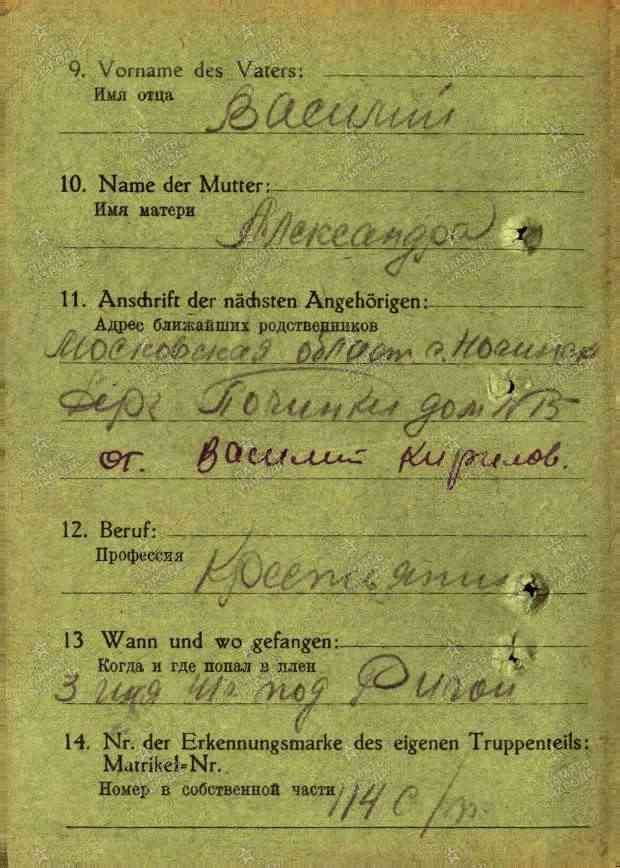 9. Vorname des Vaters:
Имя отца
Василий
10. Name der Mutter:
Имя матери
Александра
11. Anschrift der nächsten Angehörigen:
Адрес ближайших родственников
Московская област. г. Ногинск
дер. Починки дом №15
от. Василий Кирилов.
12. Beruf:
Профессия
Крестьянин
13 Wann und wo gefangen:
Когда и где попал в плен
3 41г под Ригой
14. Nr. der Erkennungsmarke des eigenen Truppenteils:
Matrikel=Nr.
Номер в собственной части
114 с/п.